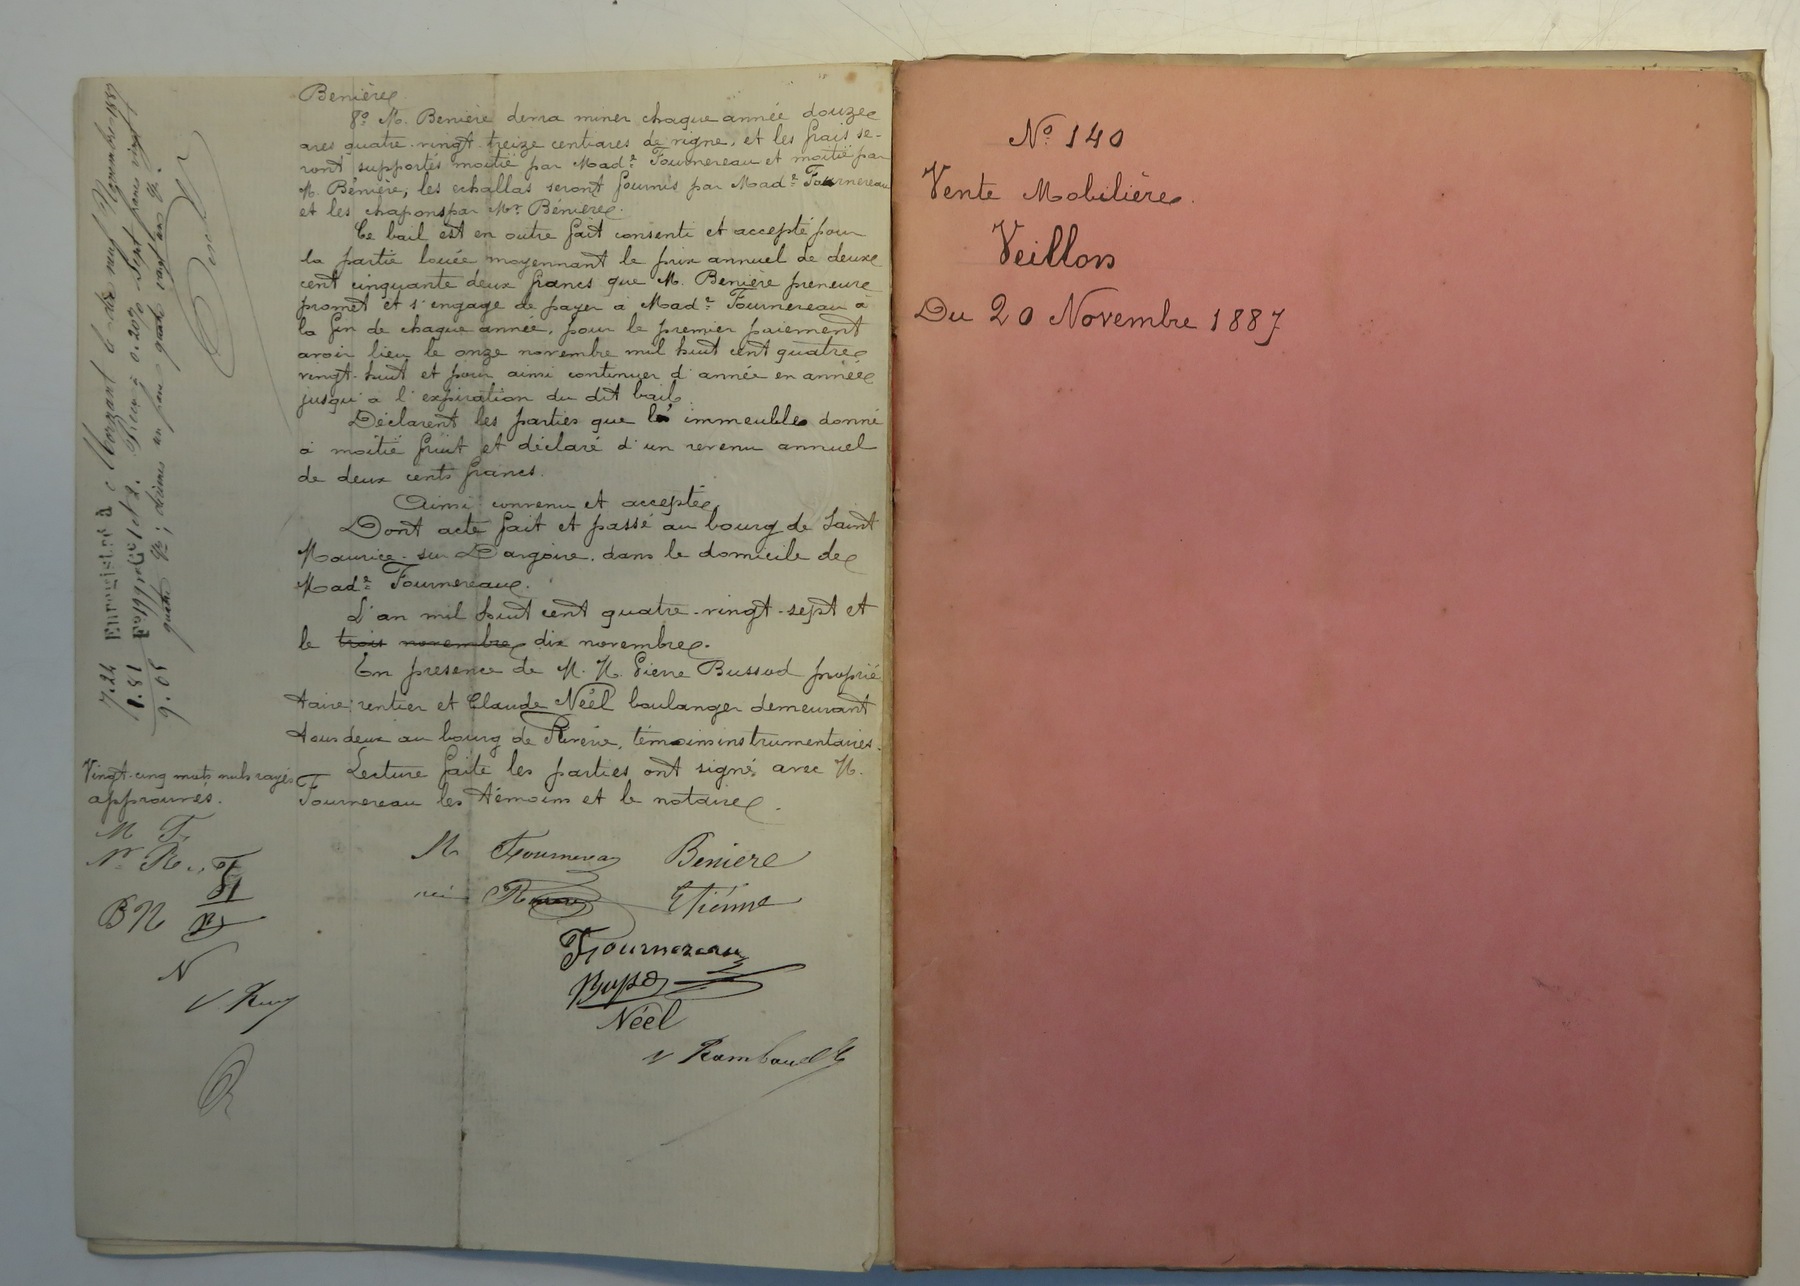 Benière
8º M. Benière devra miner chaque année douze
ares quatre-vingt-treize centiares de vigne, et les frais se-
ront supportés moitié par Made Fournereau et moitié par
M. Bénière, les echallas seront fournis par Made Fournereau
et les chapons par Mr Bénière.
Ce bail est en outre fait consenti et accepté pour
la partie louée moyennant le prix annuel de deux
cent cinquante deux francs que M. Benière preneur
promet et s'engage de payer à Made Fournereau à
la fin de chaque année, pour le premier paiement
avoir lieu le onze novembre mil huit cent quatre
vingt-huit et pour ainsi continuer d'année en année
jusqu'à l'expiration du dit bail.
Déclarent les parties que les immeubles donné
à moitié fruit et déclaré d'un revenu annuel
de deux cents francs.
Ainsi convenu et accepté
Dont acte fait et passé au bourg de Saint
Maurice-sur-Dargoire, dans le domicile de
Made Fournereau.
L'an mil huit cent quatre-vingt-sept et
le trois novembre dix novembre.
En présence de M. M. Pierre Bussod proprié
taire rentier et Claude Néel boulanger demeurant
tous deux au bourg de Riverie, témoins instrumentaires.
Lecture faite les parties ont signé avec M.
Fournereau les témoins et le notaire.
Vingt-cinq mots nuls rayés
approuvés.
M F
BN
N
M Fournereau Benière
Etienne
Fournereau
Néel
Rambaud
Enregistré à Mornant le dix neuf Novembre 1887
7.24
1.81
9.05
Nº 140
Vente Mobilière.
Veillon
Du 20 Novembre 1887